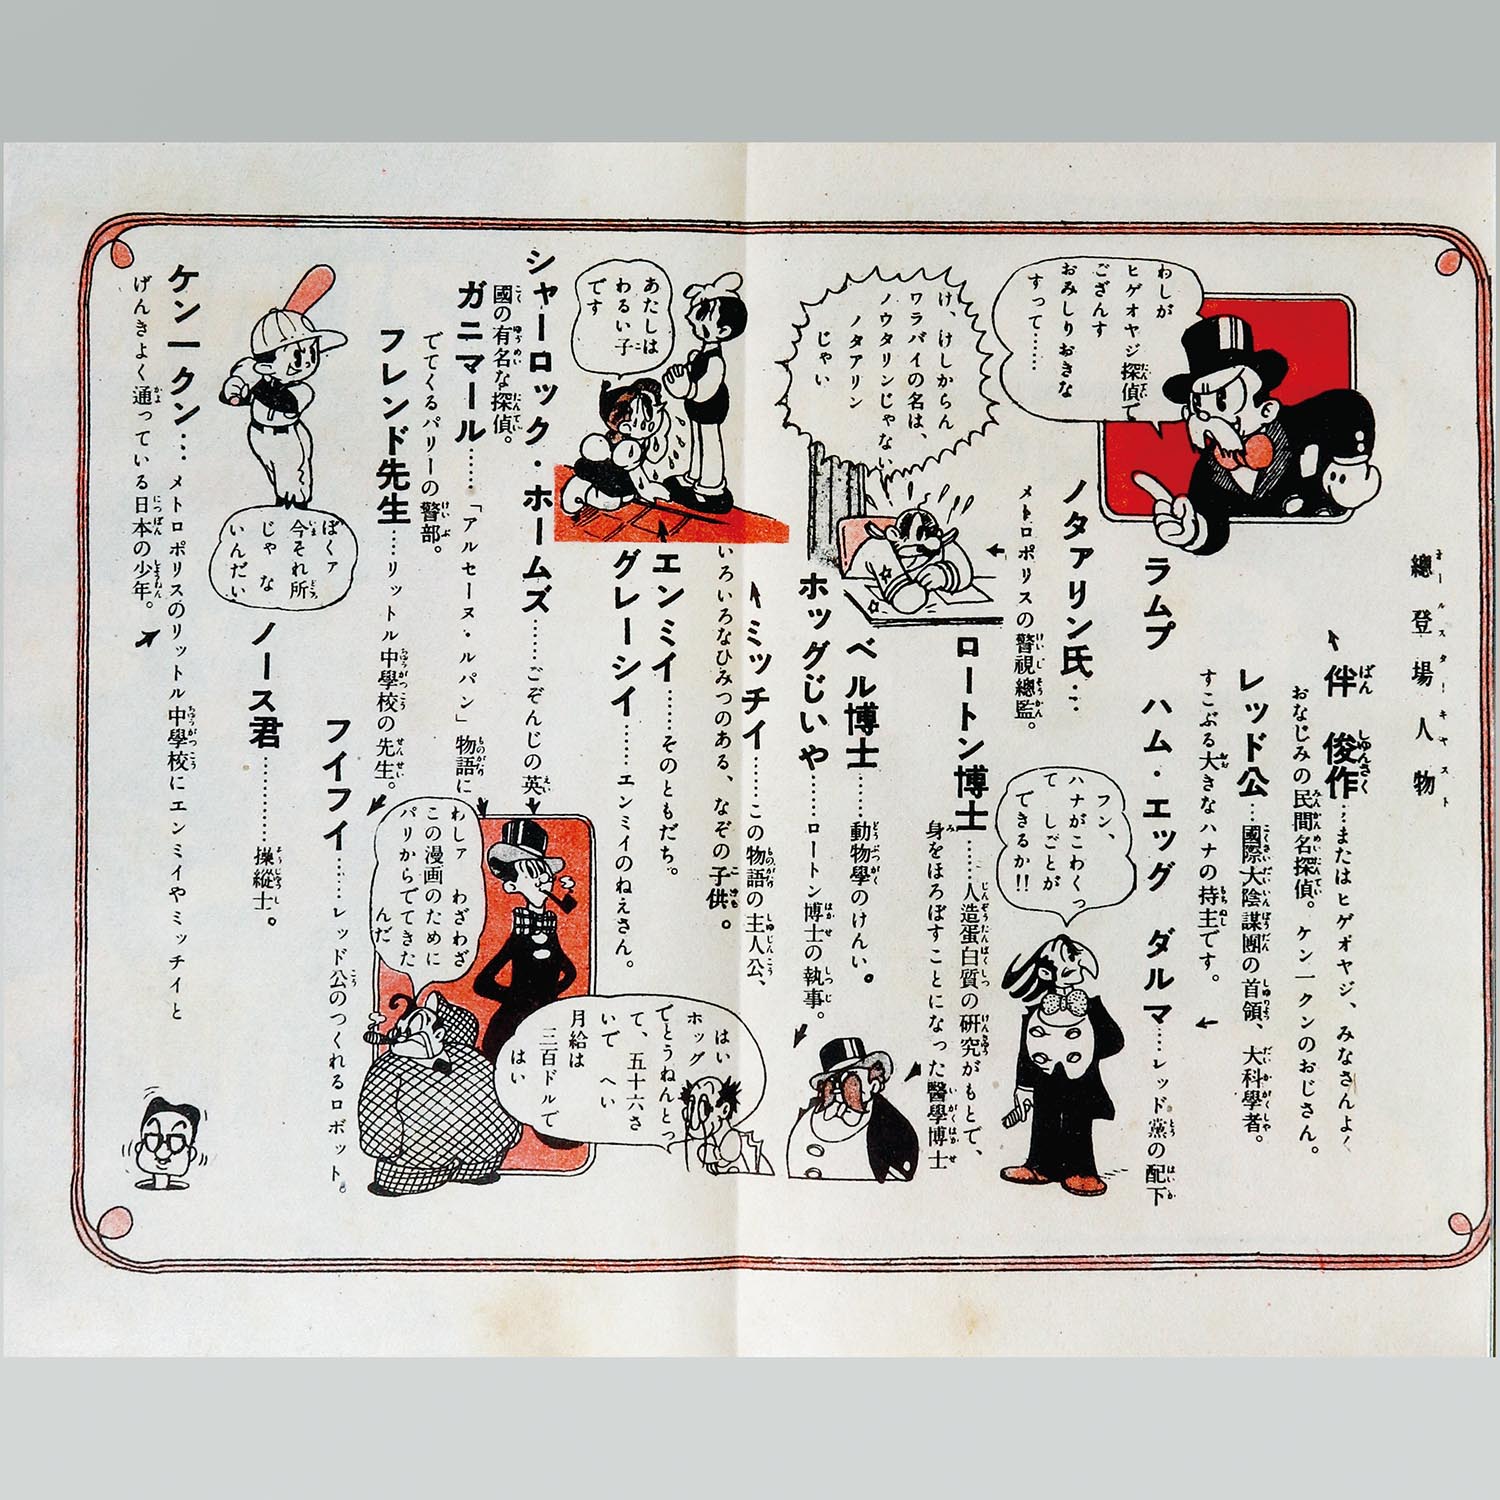 總登場人物
オールスターキャスト
伴俊作…またはヒゲオヤジ、みなさんよく
おなじみの民間名探偵。ケン一クンのおじさん。
レッド公…國際大陰謀團の首領、大科學者。
すこぶる大きなハナの持主です。
ラムプ ハム・エッグ ダルマ…レッド黨の配下
わしが
ヒゲオヤジ探偵で
ござんす
おみしりおきな
すって……
フン、
ハナがこわくっ
て しごとが
できるか!!
ノタァリン氏…
メトロポリスの警視總監。
け、けしからん
ワラバイの名は、
ノウタリンじゃない
ノタアリン
じゃい
ロートン博士……人造蛋白質の研究がもとで、
身をほろぼすことになった醫學博士
ベル博士……動物學のけんい。
ホッグじいや……ロートン博士の執事。
はい
ホッグ
でとうねんとっ
て、五十六さ
いで へい
月給は
三百ドルで
はい
ミッチイ……この物語の主人公、
いろいろなひみつのある、なぞの子供。
エンミイ……そのともだち。
グレーシイ……エンミイのねえさん。
あたしは
わるい子
です
シャーロック・ホームズ……ごぞんじの英
國の有名な探偵。
ガニマール……「アルセーヌ・ルパン」物語に
でてくるパリーの警部。
わしァ わざわざ
この漫画のために
パリからでてきた
んだ
フレンド先生……リットル中學校の先生。
フイフイ……レッド公のつくれるロボット。
ノース君…………操縦士。
ぼくァ
今それ所
じゃ な
いんだい
ケン一クン…メトロポリスのリットル中學校にエンミイやミッチイと
げんきよく通っている日本の少年。